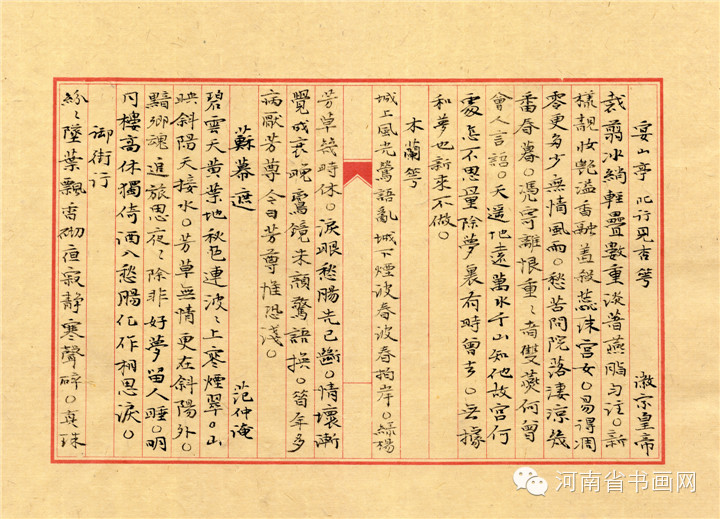 宴山亭 北行見杏華 徽宗皇帝
裁翦冰綃輕疊數重淡著燕脂勻注。新
樣靚妝艷溢香融羞殺蕊珠宮女。易得凋
零更多少無情風雨。愁苦問院落淒涼幾
番春暮。憑寄離恨重〻者雙燕何曾
會人言語。天遙地遠萬水千山知他故宮何
處怎不思量除夢裏有時曾去。無據
和夢也新來不做。
木蘭華
城上風光鶯語亂城下煙波春波春拍岸。綠楊
芳草幾時休。淚眼愁腸先已斷。情懷漸
覺成衰晚鸞鏡朱顏驚語換。昔年多
病厭芳尊今日芳尊惟恐淺。
蘇幕遮 范仲淹
碧雲天黃葉地秋色連波〻上寒煙翠。山
映斜陽天接水。芳草無情更在斜陽外。
黯鄉魂追旅思夜〻除非好夢留人睡。明
月樓高休獨倚酒入愁腸化作相思淚。
御街行
紛〻墜葉飄香砌夜寂靜寒聲碎。真珠
河南省书画网